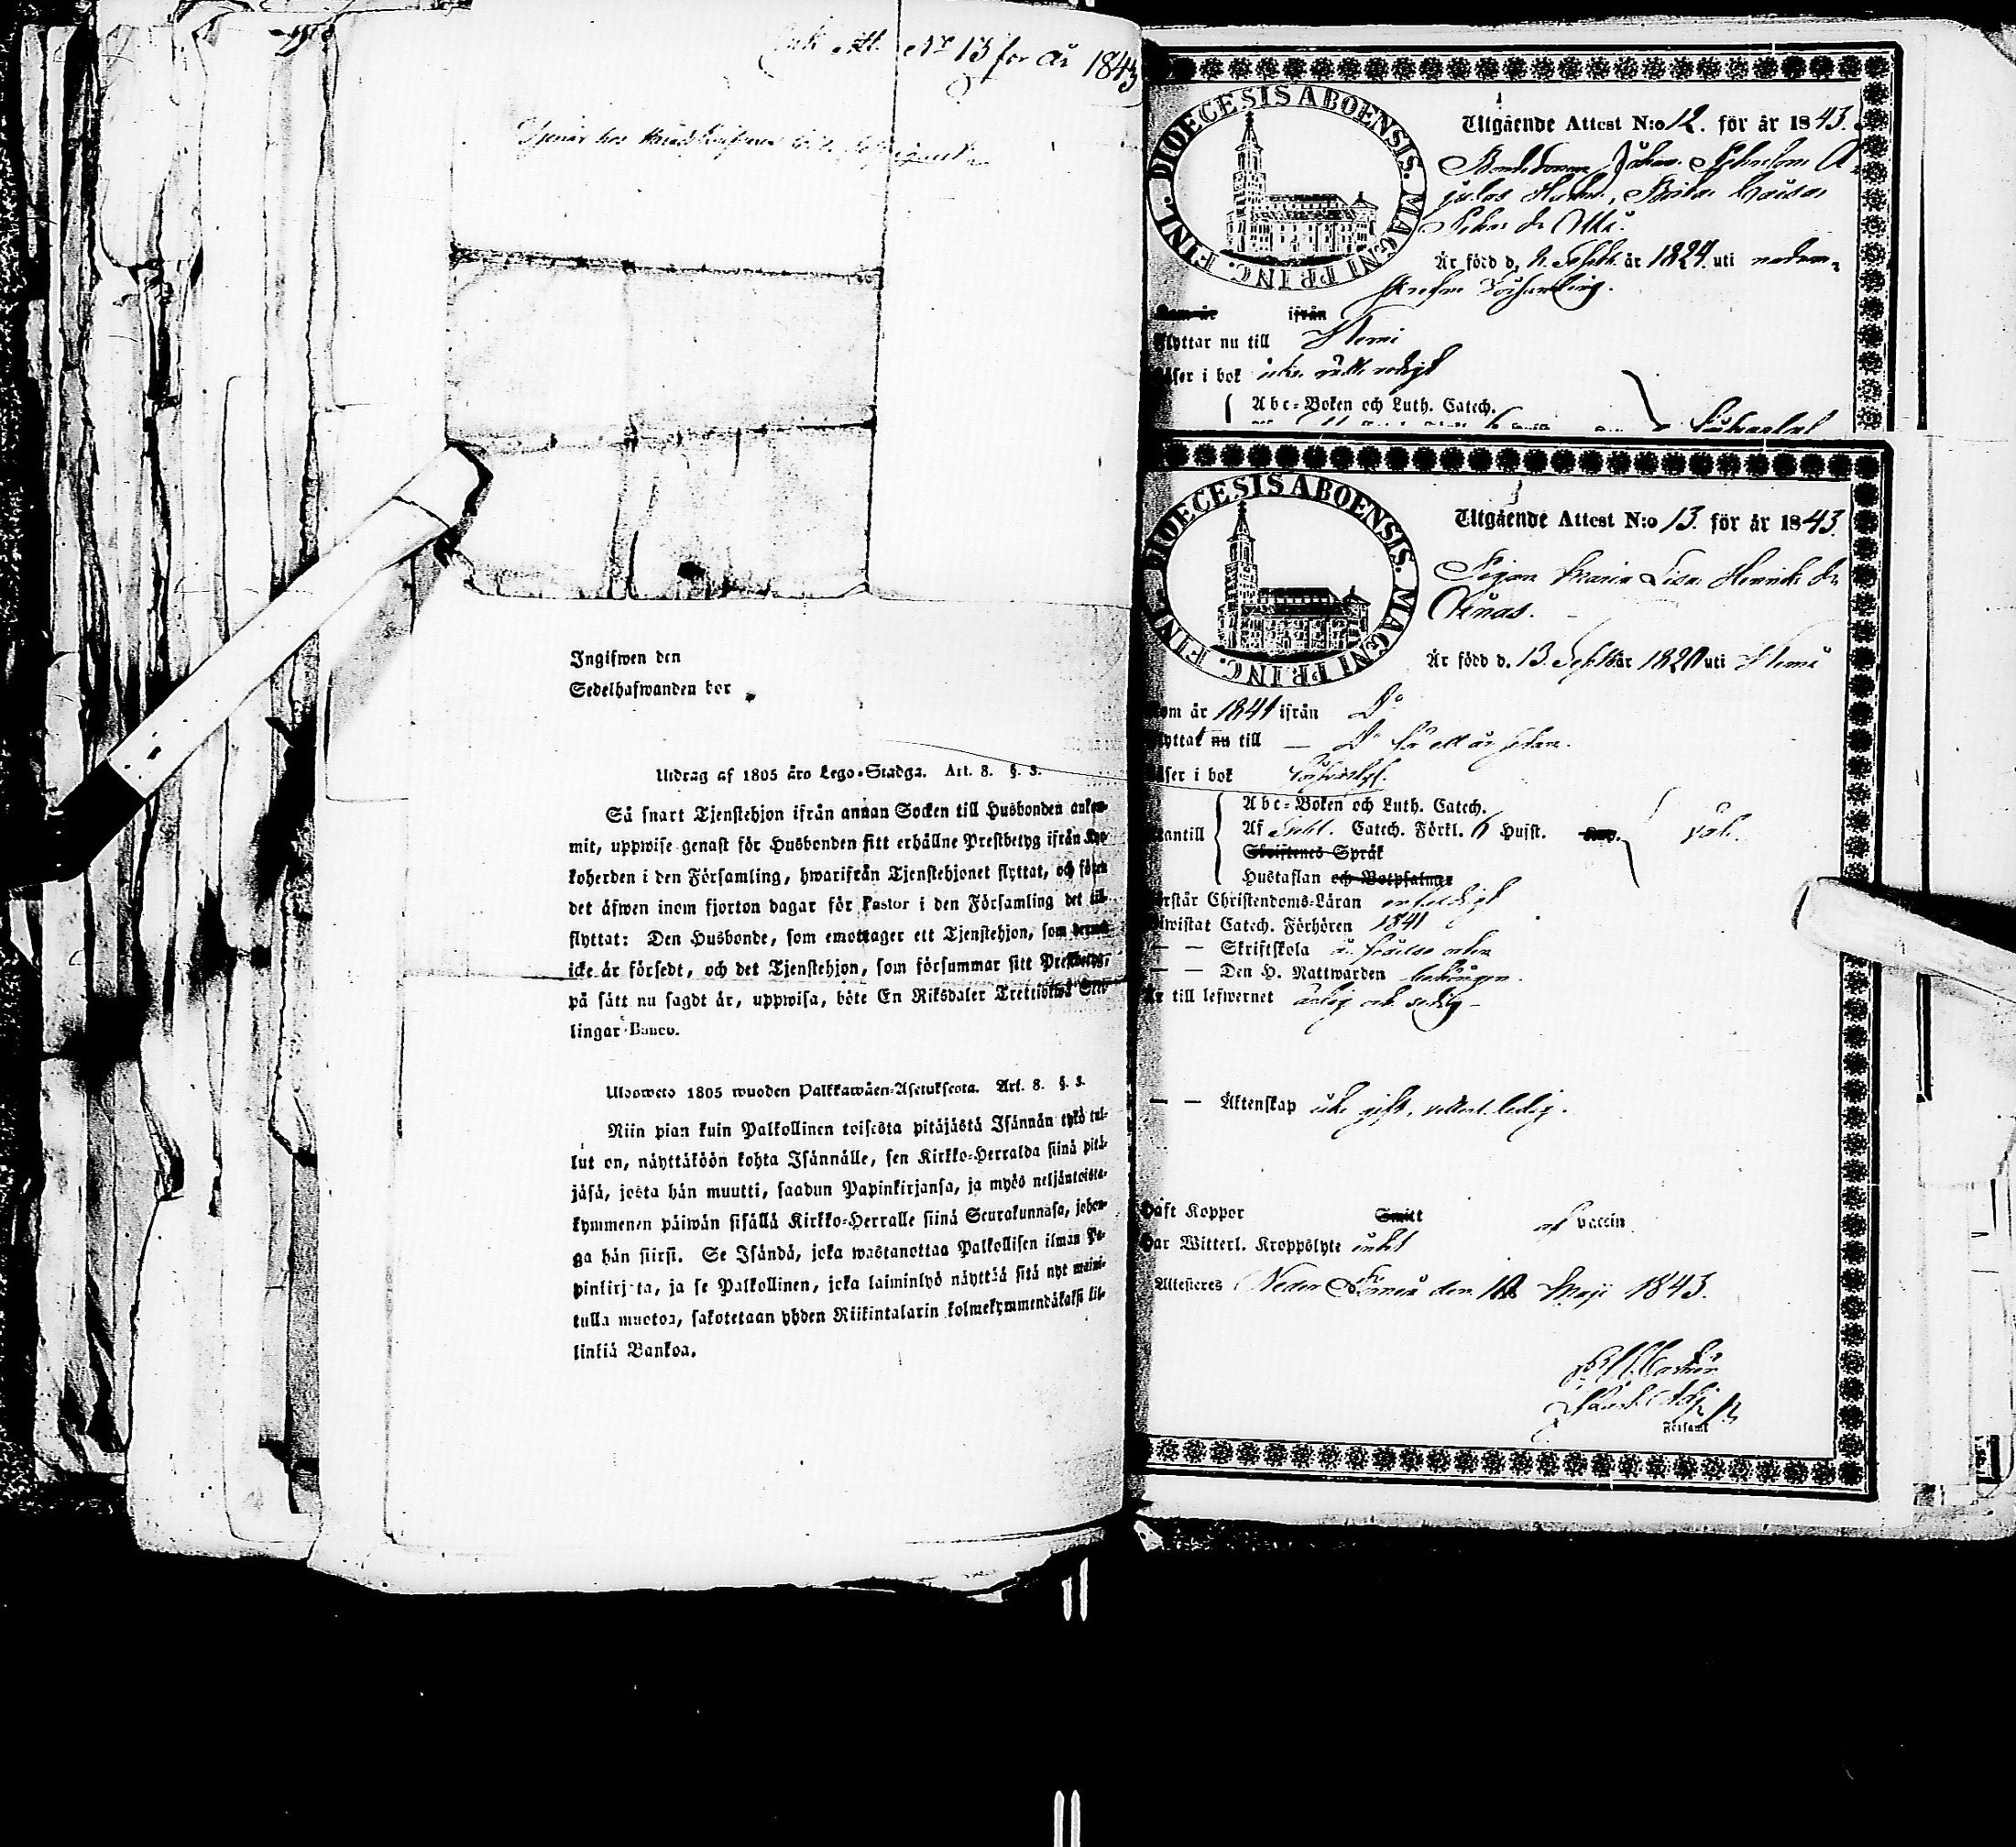 Att. No 13 för år 1843
Tjenar hos
Ingifwen den
Sedelhafwanden bor
Utdrag af 1805 års Lego-Stadga. Art. 8. §. 3.
Så snart Tjenstehjon ifrån annan Socken till Husbonden ankom-
mit, uppwise genast för Husbonden sitt erhållne Prestbetyg ifrån Kyr-
koherden i den Församling, hwarifrån Tjenstehjonet flyttat, och sedan
det äfwen inom fjorton dagar för Pastor i den Församling det till-
flyttat: Den Husbonde, som emottager ett Tjenstehjon, som dermed
icke är försedt, och det Tjenstehjon, som försummar sitt Prestbetyg,
på sätt nu sagdt är, uppwisa, böte En Riksdaler Trettiotwå Skil-
lingar Banco.
Ulosweto 1805 wuoden Palkkawäen-Asetuksesta. Art. 8. §. 3.
Niin pian kuin Palkollinen toisesta pitäjästä Isännän tykö tul-
lut on, näyttäköön kohta Isännälle, sen Kirkko-Herralda siinä pitä-
jäsä, josta hän muutti, saadun Papinkirjansa, ja myös neljäntoista-
kymmenen päiwän sisällä Kirkko-Herralle siinä Seurakunnasa, johon-
ga hän siirsi. Se Isändä, joka wastanottaa Palkollisen ilman Pa-
pinkirjata, ja se Palkollinen, joka laiminlyö näyttää sitä nyt maini-
tulla muotoa, sakotetaan yhden Riikintalarin kolmekymmendäkaksi kil-
linkiä Bankoa.
DIOECESIS ABOENSIS. MAGNI PRINC. FINL.
Utgående Attest N:o 12. för år 1843.
Bondsonen Johan Johnson
Är född d. 2 Septb. år 1824 uti nedan-
skrefne Församling.
Kom år ifrån
Flyttar nu till Kemi
Läser i bok icke rätt redigt
Abc-Boken och Luth. Catech.
DIOECESIS ABOENSIS. MAGNI PRINC. FINL.
Utgående Attest N:o 13. för år 1843.
Pigan Maria Lisa Henriks dr
Är född d. 13. Septb år 1820 uti Kemi
Kom år 1841 ifrån Do
flyttat nu till — Do för ett år sedan.
Läser i bok försvarligt.
Abc-Boken och Luth. Catech.
Utantill Af Svebil. Catech. Förkl. 6 Hufst. väl.
Skriftenes Språk
Hustaflan och Botpsalmer
Förstår Christendoms-Läran enfaldigt
Bewistat Catech. Förhören 1841
— — Skriftskola
— — Den H. Nattwarden begången.
Är till lefwernet ärlig och sedig —
— — Äktenskap icke gift, ledig.
Haft Koppor Smitt af vaccin
Har Witterl. Kroppslyte intet
Attesteres Neder Torneå den 10 Maji 1843.
Församl